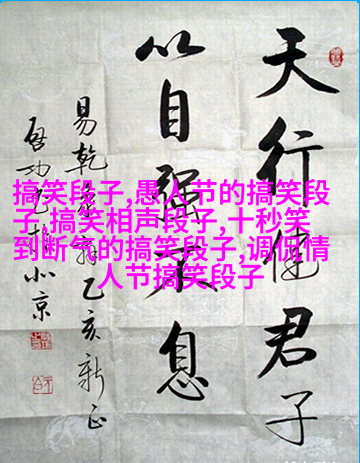 天行健君子
以自强不息
易乾
乙亥新正
启功
北京
搞笑段子,愚人节的搞笑段
子,搞笑相声段子,十秒笑
到断气的搞笑段子,调侃情
人节搞笑段子